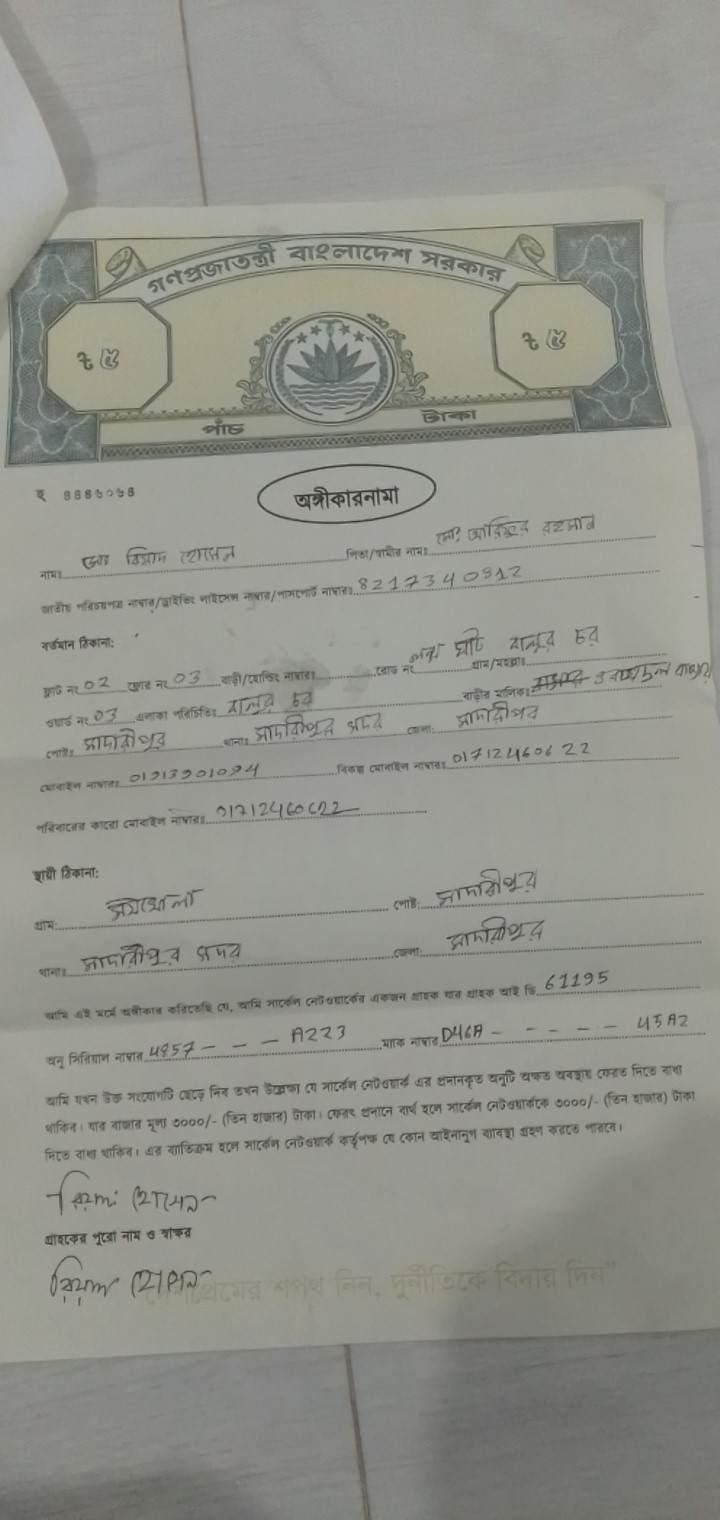 গণপ্রজাতন্ত্রী বাংলাদেশ সরকার
৳ ৫ ৳ ৫
পাঁচ টাকা
অঙ্গীকারনামা
নামঃ হোসেন পিতা/স্বামীর নামঃ মোঃ রহমান
জাতীয় পরিচয়পত্র নাম্বার/ড্রাইভিং লাইসেন্স নাম্বার/পাসপোর্ট নাম্বারঃ 8217340912
বর্তমান ঠিকানা:
ফ্লাট নং 02 ফ্লোর নং 03 বাড়ী/হোল্ডিং নাম্বারঃ রোড নং লঞ্চ ঘাট গ্রাম/মহল্লাঃ বালুর চর
ওয়ার্ড নং 03 এলাকা পরিচিতিঃ বালুর চর বাড়ীর মালিকঃ
পোষ্টঃ মাদারীপুর থানাঃ মাদারীপুর সদর জেলা: মাদারীপুর
মোবাইল নাম্বারঃ বিকল্প মোবাইল নাম্বারঃ 01712460622
পরিবারের কারো মোবাইল নাম্বারঃ 01712460622
স্থায়ী ঠিকানা:
গ্রাম: পোষ্ট: মাদারীপুর
থানাঃ মাদারীপুর সদর জেলা: মাদারীপুর
আমি এই মর্মে অঙ্গীকার করিতেছি যে, আমি সার্কেল নেটওয়ার্কের একজন গ্রাহক যার গ্রাহক আই ডি 61195
অনু সিরিয়াল নাম্বার 4857 - - - A223 ম্যাক নাম্বার D46A - - - - - 45A2
আমি যখন উক্ত সংযোগটি ছেড়ে দিব তখন উল্লেক্ষ্য যে সার্কেল নেটওয়ার্ক এর প্রদানকৃত অনুটি অক্ষত অবস্থায় ফেরত দিতে বাধ্য
থাকিব। যার বাজার মূল্য ৩০০০/- (তিন হাজার) টাকা। ফেরৎ প্রদানে ব্যর্থ হলে সার্কেল নেটওয়ার্ককে ৩০০০/- (তিন হাজার) টাকা
দিতে বাধ্য থাকিব। এর ব্যতিক্রম হলে সার্কেল নেটওয়ার্ক কর্তৃপক্ষ যে কোন আইনানুগ ব্যবস্থা গ্রহণ করতে পারবে।
হোসেন
গ্রাহকের পুরো নাম ও স্বাক্ষর
হোসেন
দেশপ্রেমের শপথ নিন, দুর্নীতিকে বিদায় দিন"